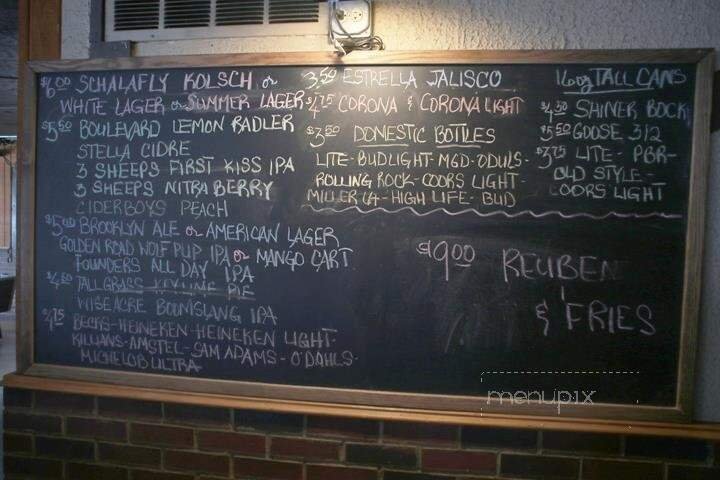 $6.00 SCHALAFLY KOLSCH or
WHITE LAGER or SUMMER LAGER
$5.50 BOULEVARD LEMON RADLER
STELLA CIDRE
3 SHEEPS FIRST KISS IPA
3 SHEEPS NITRA BERRY
CIDERBOYS PEACH
BROOKLYN ALE or AMERICAN LAGER
GOLDEN ROAD WOLF PUP IPA or MANGO CART
FOUNDERS ALL DAY IPA
TALL GRASS KEYLIME PIE
WISEACRE BOOMSLANG IPA
BECKS-HEINEKEN-HEINEKEN LIGHT-
KILLIANS-AMSTEL-SAM ADAMS-O'DAHLS-
MICHELOB ULTRA
3.50 ESTRELLA JALISCO
$4.75 CORONA & CORONA LIGHT
$3.50 DOMESTIC BOTTLES
LITE-BUDLIGHT-MGD-ODULS-
ROLLING ROCK-COORS LIGHT-
MILLER 64-HIGH LIFE-BUD
16oz TALL CANS
$4.50 SHINER BOCK
$5.50 GOOSE 312
$3.75 LITE-PBR-
OLD STYLE-
COORS LIGHT
$9.00 REUBEN
& FRIES
menupix